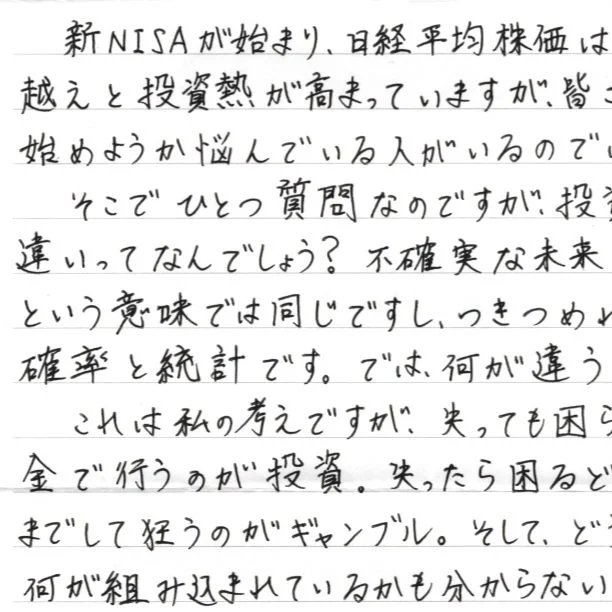 新NISAが始まり、日経平均株価は
越えと投資熱が高まっていますが、皆さ
始めようか悩んでいる人がいるのでい
そこでひとつ質問なのですが、投資
違いってなんでしょう？不確実な未来
という意味では同じですし、つきつめれ
確率と統計です。では、何が違う
これは私の考えですが、失っても困ら
金で行うのが投資。失ったら困るど
までして狂うのがギャンブル。そして、どう
何が組み込まれているかも分からない